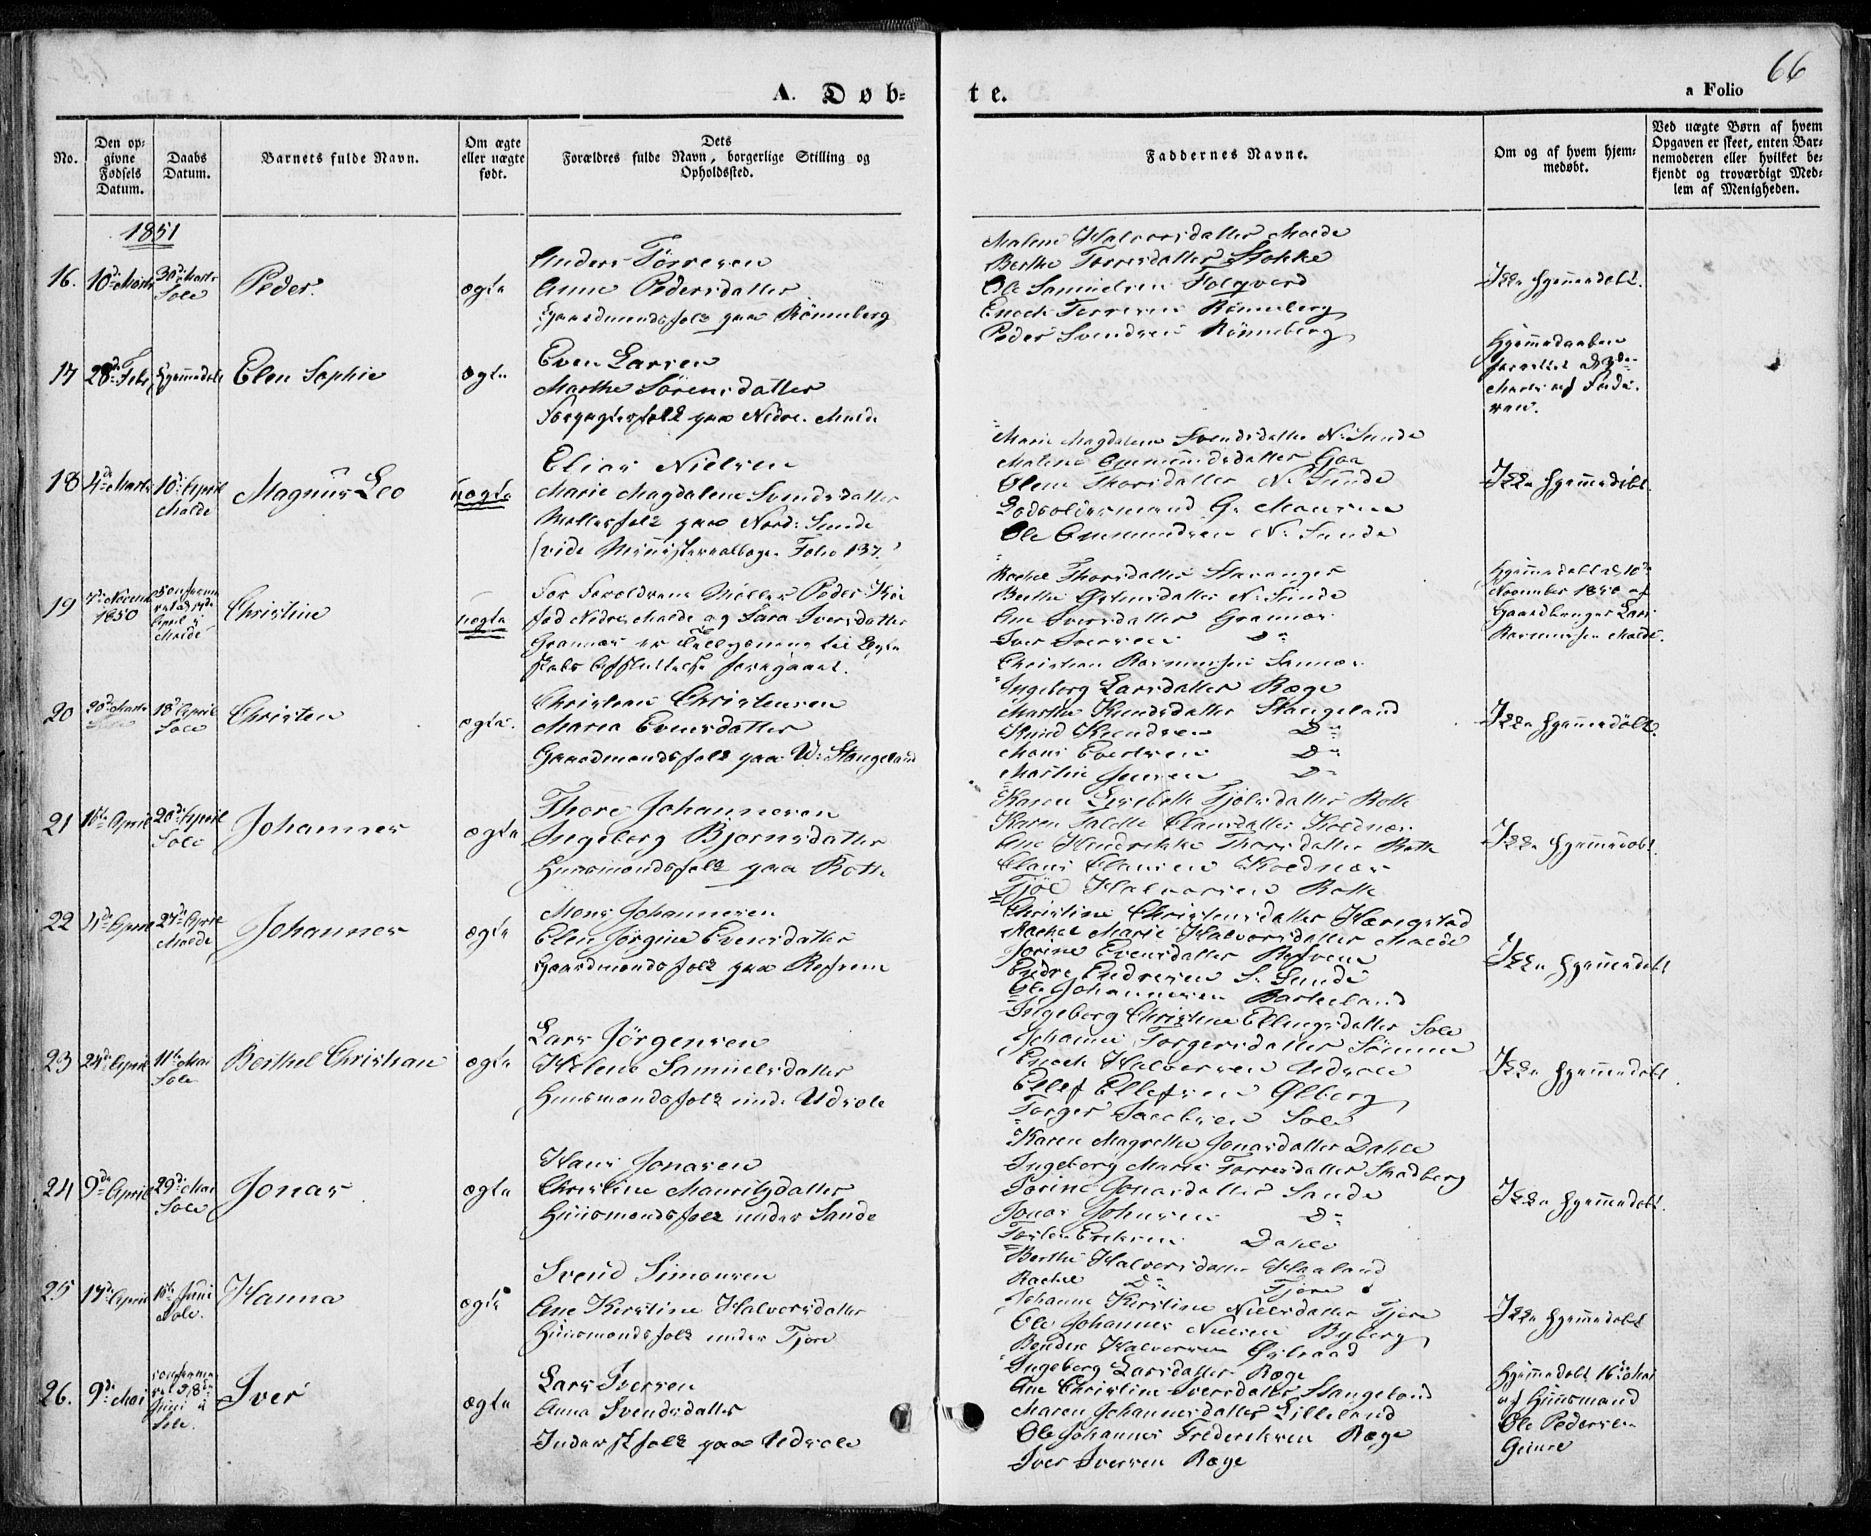 66
A. Døb-
te.
a Folio
No.
Den op-
givne
Fødsels
Datum.
Daabs
Datum.
Barnets fulde Navn.
Om ægte
eller uægte
født.
Dets
Forældres fulde Navn, borgerlige Stilling og
Opholdssted.
Faddernes Navne.
Om og af hvem hjem-
medøbt.
Ved uægte Børn af hvem
Opgaven er skeet, enten Bar-
nemoderen eller hvilket be-
kjendt og troværdigt Med-
lem af Menigheden.
1851
16. 10de Marts 30de Marts Sole
Peder.
ægte
Anders Tørresen
Anne Pedersdatter
Gaardmandsfolk paa Rönneberg
Malene Halvorsdatter Malde
Berthe Torresdatter Stokke
Ole Samuelsen
Enoch Torresen Rönneberg
Peder Svendsen Rönneberg
Ikke hjemmedöbt.
17 28de Febr Hjemmedöbt
Elen Sophie
ægte
Even Larsen
Marthe Sørensdatter
Forpagterfolk paa Nedre Malde
Hjemmedaaben
forrettet d. 3de
Marts af Fade-
ren.
18 4de Marts 10de April Malde
Magnus Leo
uægte
Elias Nielsen
Marie Magdalene Svendsdatter
Møllerfolk paa Nord: Sunde
(vide Ministerialbogen Folio 137.)
Marie Magdalene Svendsdatter N. Sunde
Malene Ommundsdatter Goa
Olene Thorsdatter N. Sunde
G. Monsen
Ole Ommundsen N. Sunde
Ikke hjemmedöbt.
19 7de Novemb 1850
April
Malde
Christine
uægte
For Forældrene Møller Peder
fød Nedre Malde og Sara Iversdatter
Grannæs er Tillysning til Ægte
skabs Afsluttelse foregaaet.
Rachel Thorsdatter Stavanger
Berthe Østensdatter N. Sunde
Ane Iversdatter Grannæs
Iver Iversen D°
Christian Rasmussen Sannæs
Hjemmedöbt d. 10de
November 1850 af
Gaardbruger Lars
Rasmussen Malde.
20 20de Marts 18de April Sole
Christen
ægte.
Christen Christensen
Maria Evensdatter
Gaardmandsfolk paa W. Stangeland
Ingeborg Larsdatter Ræge
Marthe Knudsdatter Stangeland
Knud Knudsen D°
Mons Evertsen D°
Martin Jensen D°
Ikke hjemmedöbt.
21 16de April 20de April Sole
Johannes
ægte
Thore Johannesen
Ingeborg Bjørnsdatter
Huusmandsfolk paa Rott
Karen Lisebeth Tjølsdatter Rott
Karen Talette Clausdatter Kolnæs
Ane Hendrikke Thorsdatter Rott
Claus Clausen Kolnæs
Tjöl Halvorsen Rott
Ikke hjemmedöbt.
22 4de April 27de April Malde
Johannes
ægte
Mons Johannesen
Elen Jörgine Evensdatter
Gaardmandsfolk paa Refsem
Christine Christensdatter Hæregstad
Rachel Marie Halvorsdatter Malde
Jorine Evensdatter Refsem
Endre Endresen S. Sunde
Ole Johannesen Barkeland
Ikke hjemmedöbt
23 24de April 11te Mai Sole
Berthel Christian
ægte
Lars Jörgensen
Helene Samuelsdatter
Huusmandsfolk und. Udsole
Ingeborg Christine Ellingsdatter Sole
Johanne Torgersdatter Sömme
Enoch Halvorsen Udsole
Ellef Ellefsen Ølberg
Torger Jacobsen Sole
Ikke hjemmedöbt
24 9de April 29de Mai Sole
Jonas
ægte
Hans Jonasen
Christine Mauritzdatter
Huusmandsfolk under Sande
Karen Magrethe Jonasdatter Dahle
Ingeborg Marie Torresdatter Skadberg
Jorine Jonasdatter Sande
Jonas Johnsen D°
Torsten Eriksen Dahle
Ikke hjemmedöbt.
25 17de April 15de Juni Sole.
Hanna
ægte
Svend Simonsen
Ane Kirstine Halvorsdatter
Huusmandsfolk under Tjore
Berthe Halvorsdatter Haaland
Rachel D° Tjore
Johanne Kirstine Nielsdatter Tjore
Ole Johannes Nielsen Byberg
Halvorsen
Ikke hjemmedöbt
26. 9de Mai
Juni
Sole.
Iver
ægte
Lars Iversen
Anna Svendsdatter
Inderstfolk paa Udsole
Ingeborg Larsdatter Ræge
Ane Christine Iversdatter Stangeland
Maren Johannesdatter Lilleland
Ole Johannes Frederiksen Ræge
Iver Iversen Ræge
Hjemmedöbt 16de Mai
af Huusmand
Ole Pedersen